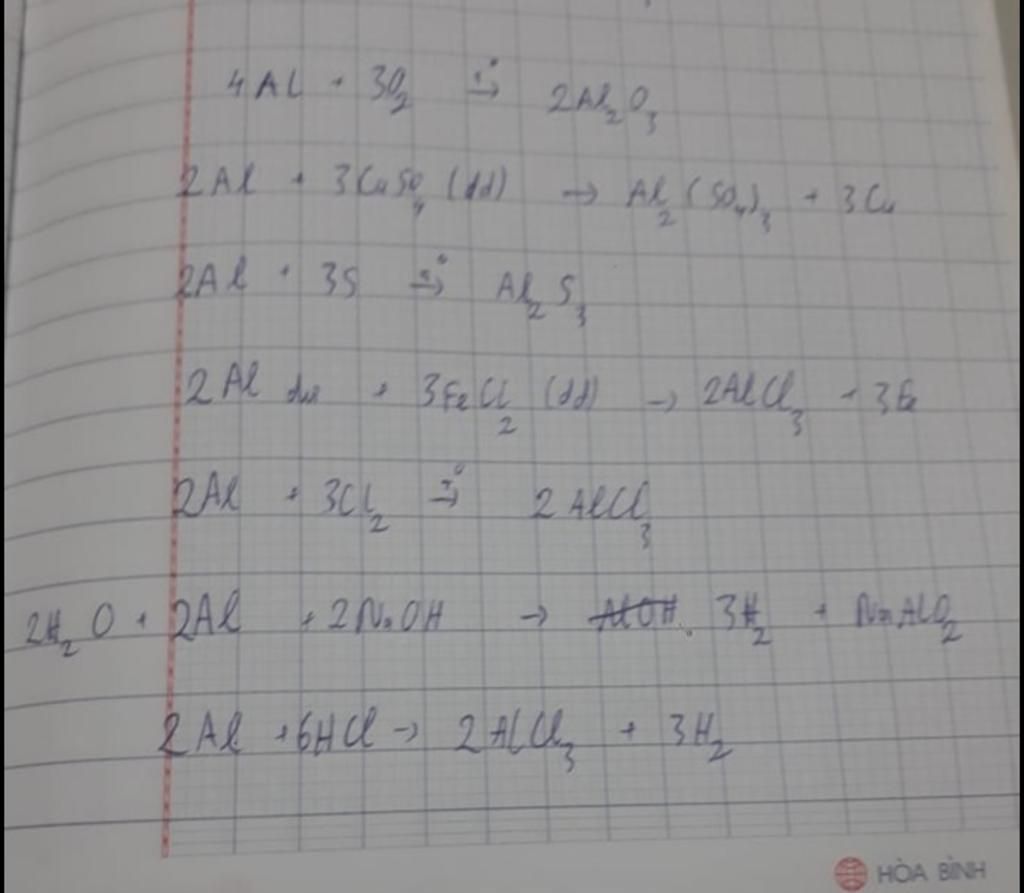 4Al + 3O₂ t°→ 2Al₂O₃
2Al + 3CuSO₄ (dd) → Al₂(SO₄)₃ + 3Cu
2Al + 3S t°→ Al₂S₃
2Al dư + 3FeCl₂ (dd) → 2AlCl₃ + 3Fe
2Al + 3Cl₂ t°→ 2AlCl₃
2H₂O + 2Al + 2NaOH → AlOH 3H₂ + NaAlO₂
2Al + 6HCl → 2AlCl₃ + 3H₂
HÒA BÌNH